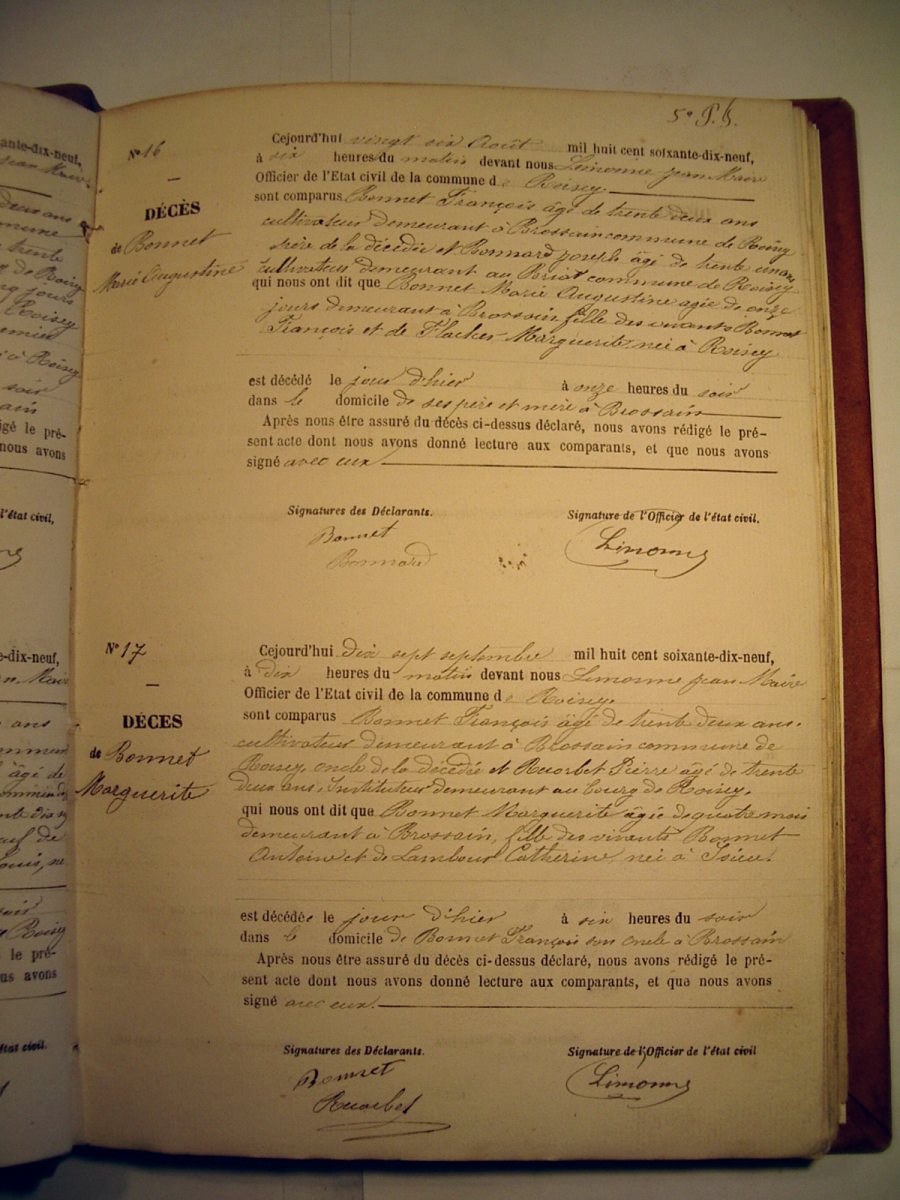 5e P. b.
ante-dix-neuf,
jean Maire
deux ans
commune
trente
de Roisey
jours
Roisey
à Roisey
soir
ain
igé le pré-
nous avons
l'état civil,
N° 16
DÉCÈS
de Bonnet
Marie Augustine
Cejourd'hui vingt six Août mil huit cent soixante-dix-neuf,
à six heures du matin devant nous Limonne jean Maire
Officier de l'Etat civil de la commune de Roisey
sont comparus Bonnet François âgé de trente deux ans
cultivateur demeurant à Brossain commune de Roisey
père de la décédée et Bonnard joseph âgé de trente un ans
cultivateur demeurant au Briat commune de Roisey
qui nous ont dit que Bonnet Marie Augustine agée de onze
jours demeurant à Brossain fille des vivants Bonnet
François et de Flacher Marguerite, née à Roisey
est décédé le jour d'hier à onze heures du soir
dans le domicile de ses père et mère à Brossain
Après nous être assuré du décès ci-dessus déclaré, nous avons rédigé le pré-
sent acte dont nous avons donné lecture aux comparants, et que nous avons
signé avec eux.
Signatures des Déclarants. Signature de l'Officier de l'état civil.
Bonnet Limonne
Bonnard
e-dix-neuf,
n, Maire
ans
commune
âgé de
de
né
soir
Roisey
le pré-
us avons
état civil.
N° 17
DÉCES
de Bonnet
Marguerite
Cejourd'hui dix sept septembre mil huit cent soixante-dix-neuf,
à dix heures du matin devant nous Limonne jean Maire
Officier de l'Etat civil de la commune de Roisey.
sont comparus Bonnet François âgé de trente deux ans.
cultivateur demeurant à Brossain commune de
Roisey, oncle de la décédée et Ruorbet Pierre âgé de trente
deux ans, Instituteur demeurant au bourg de Roisey.
qui nous ont dit que Bonnet Marguerite âgée de quatre mois
demeurant à Brossain, fille des vivants Bonnet
Antoine et de Lambous Catherine, née à Isieu.
est décédée le jour d'hier à six heures du soir
dans le domicile de Bonnet François son oncle à Brossain
Après nous être assuré du décès ci-dessus déclaré, nous avons rédigé le pré-
sent acte dont nous avons donné lecture aux comparants, et que nous avons
signé avec eux.
Signatures des Déclarants. Signature de l'Officier de l'état civil
Bonnet Limonne
Ruorbet